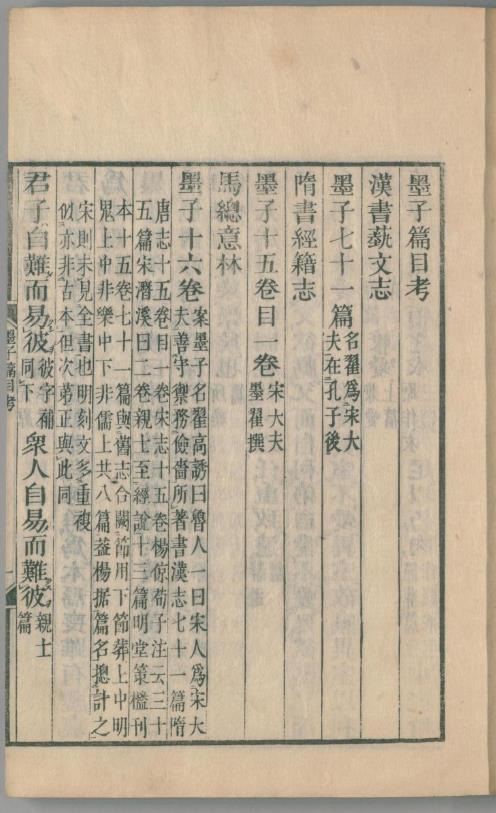 墨子篇目考
漢書蓺文志
墨子七十一篇名翟爲宋大夫在孔子後
隋書經籍志
墨子十五卷目一卷宋大夫墨翟撰
馬總意林
墨子十六卷案墨子名翟高誘曰魯人一曰宋人爲宋大夫善守禦務儉嗇所著書漢志七十一篇隋
唐志十五卷目一卷宋志十五卷楊倞荀子注云三十五篇宋潛溪曰一卷親士至經說十三篇明堂策檻刊
本十五卷七十一篇與舊志合闕節用下節葬上中明鬼上中非樂中下非儒上共八篇葢楊据篇名摠計之
宋則未見全書也明刻文多重複似亦非古本但次第正與此同
君子自難而易彼彼字補同下衆人自易而難彼親士篇
墨子篇目考
一